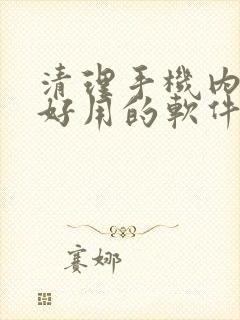 清理手機內
好用的軟件
賽娜